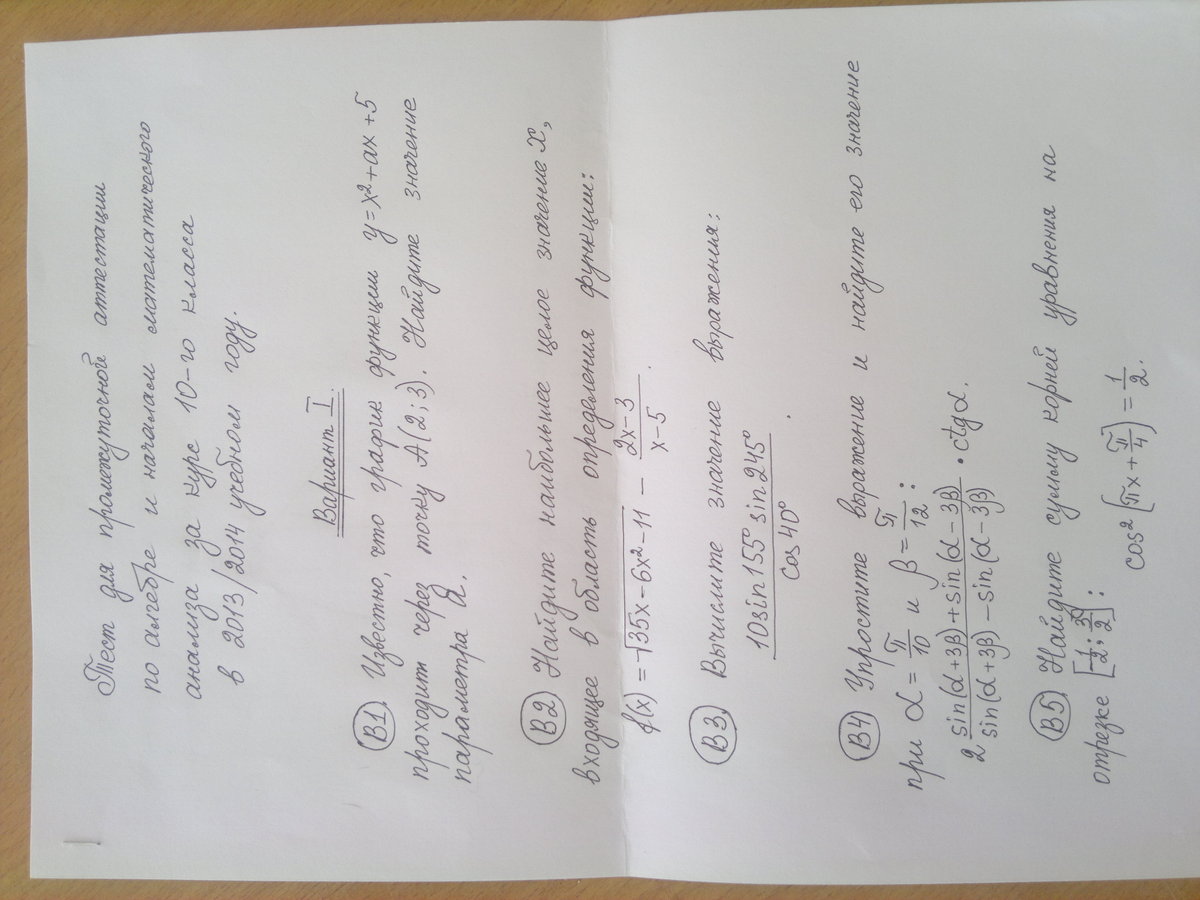 Тест для промежуточной аттестации
по алгебре и началам математического
анализа за курс 10-го класса
в 2013/2014 учебном году.
Вариант I.
B1. Известно, что график функции y=x²+ax+5
проходит через точку A(2;3). Найдите значение
параметра a.
B2 Найдите наибольшее целое значение x,
входящее в область определения функции:
f(x) = √(35x-6x²-11) - (2x-3)/(x-5).
B3. Вычислите значение выражения:
(10sin155° sin245°)/(cos40°).
B4 Упростите выражение и найдите его значение
при α = π/10 и β = π/12:
2 (sin(α+3β)+sin(α-3β))/(sin(α+3β)-sin(α-3β)) · ctgα.
B5. Найдите сумму корней уравнения на
отрезке [1/2; 3/2]:
cos²[πx+π/4) = 1/2.